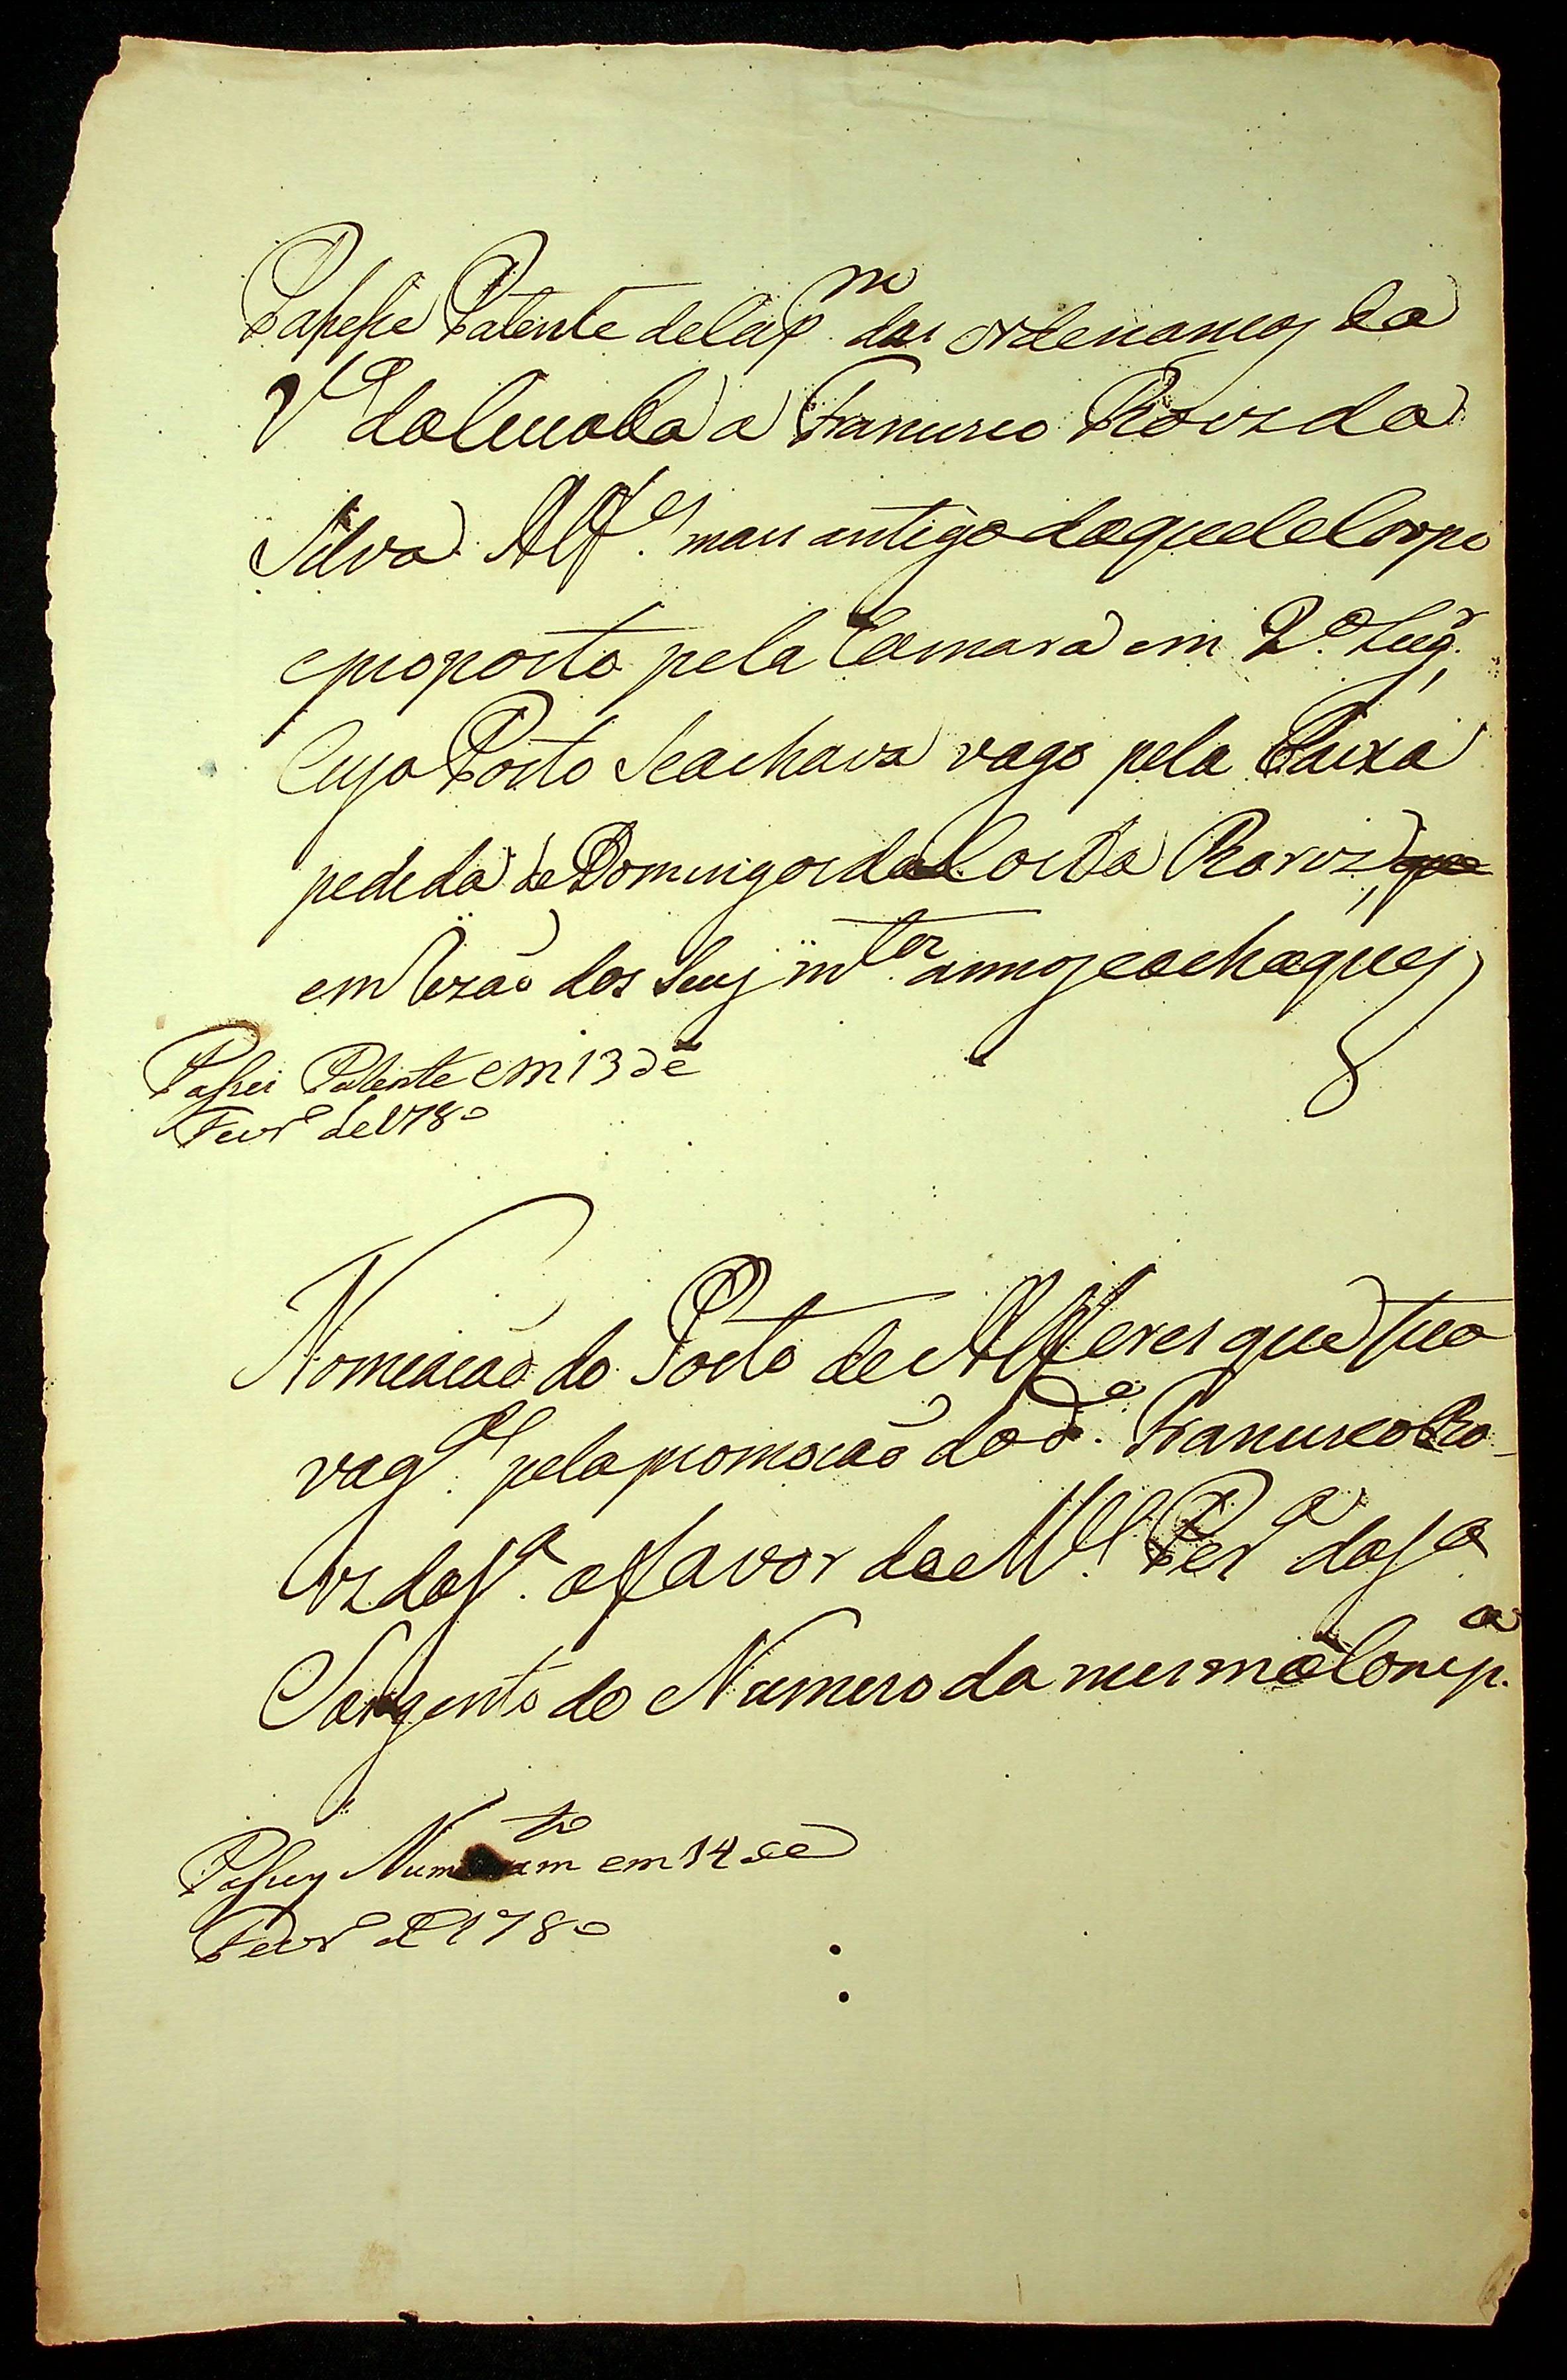 Passese Patente de Cap.m das ordenanças da
V.a da Cuiaba a Francisco Roiz da
Silva Alf.es mais antigo daquele Corpo
e proposto pela Camara em 2.o lug.r,
Cujo Posto Se achava vago pela Baixa
pedida de Domingos da Costa
em rezaõ dos Seus m.tos annos e achaques
Passei Patente em 13 de
Fevr.o de 1780
Nomeacaõ do Posto de Alferes que fica
vag.e pela promocaõ do d.o Francisco Ro-
iz da S.a a favor de M.el Per.a da S.a
Sargento do Numero da mesma Comp.a
Passey em 14 de
Fevr.o de 1780